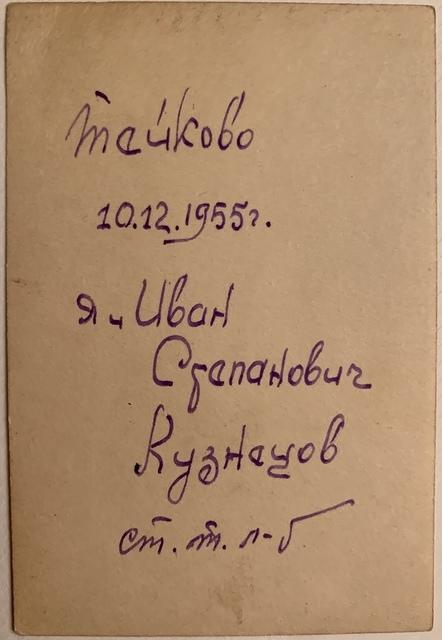 Тейково
10.12.1955г.
я и Иван
Степанович
Кузнецов
ст. т. л-б